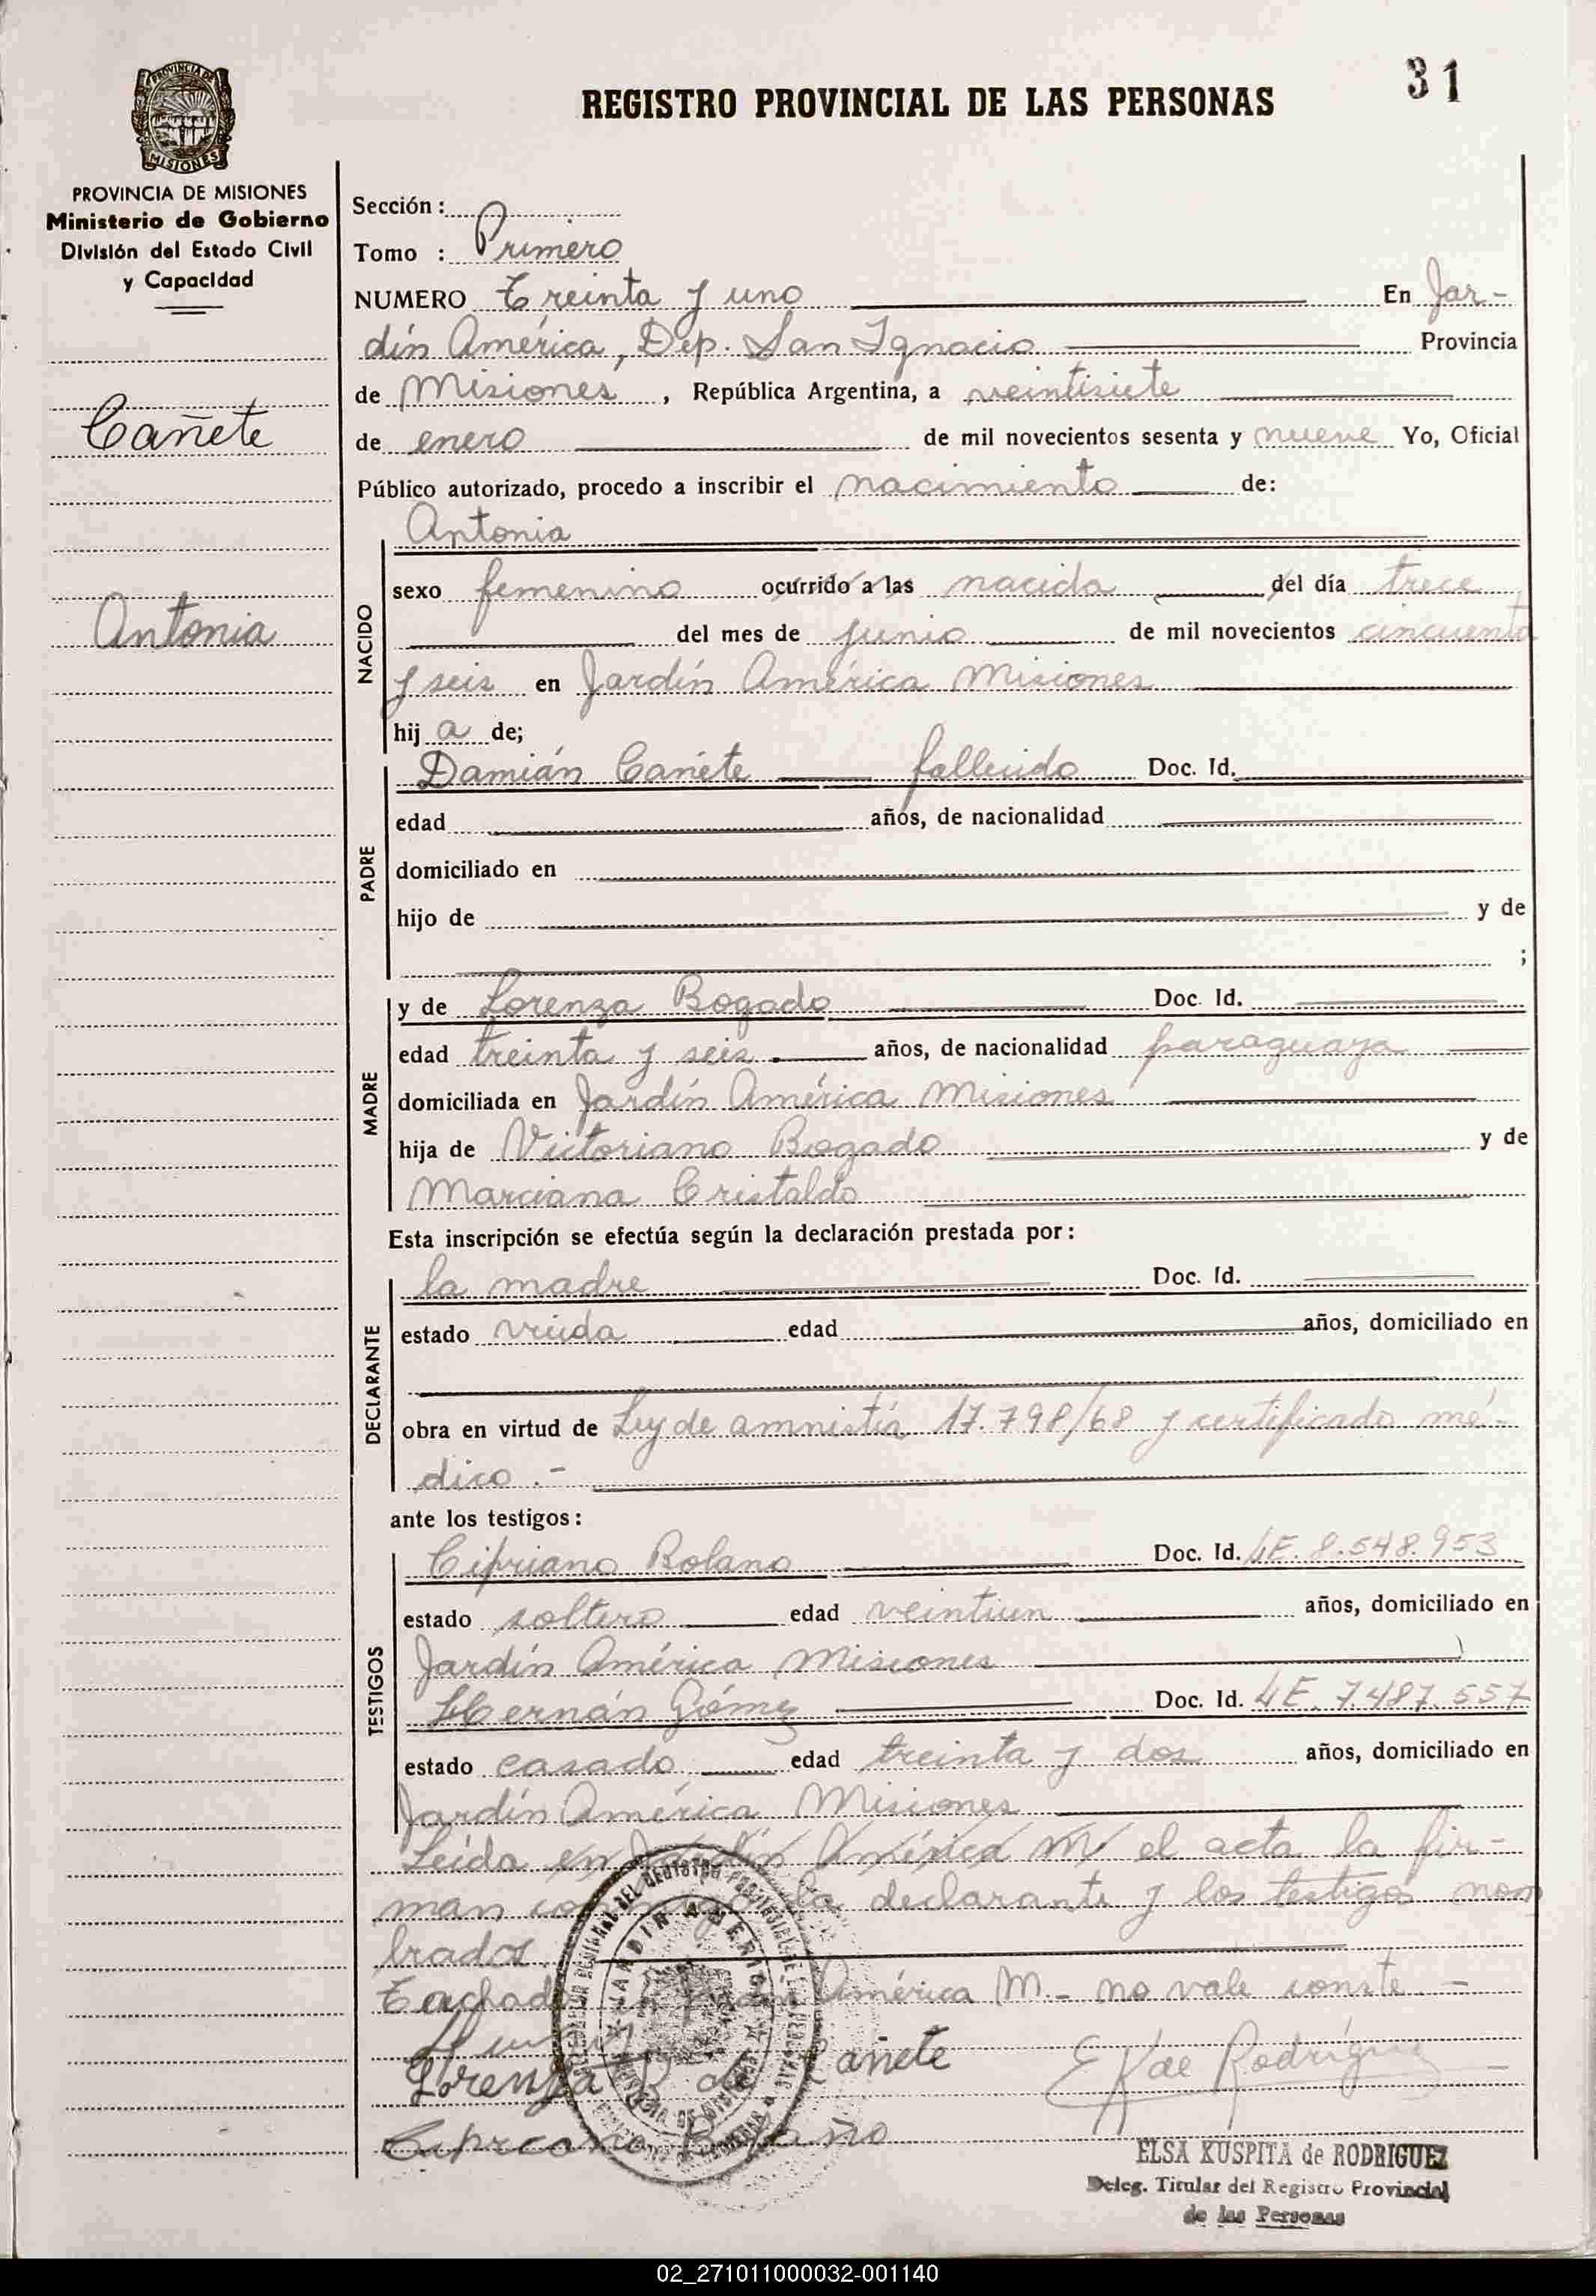 REGISTRO PROVINCIAL DE LAS PERSONAS
31
PROVINCIA DE MISIONES
Ministerio de Gobierno
División del Estado Civil
y Capacidad
Cañete
Antonia
Sección :
Tomo : Primero
NUMERO Treinta y uno En Jar-
dín América, Dep. San Ignacio Provincia
de Misiones , República Argentina, a veintisiete
de enero de mil novecientos sesenta y nueve Yo, Oficial
Público autorizado, procedo a inscribir el nacimiento de:
Antonia
NACIDO
sexo femenino ocurrido a las nacida del día trece
del mes de junio de mil novecientos cincuenta
y seis en Jardín América Misiones
hij a de;
PADRE
Damián Cañete fallecido Doc. Id.
edad años, de nacionalidad
domiciliado en
hijo de y de
;
MADRE
y de Lorenza Bogado Doc. Id.
edad treinta y seis años, de nacionalidad paraguaya
domiciliada en Jardín América Misiones
hija de Victoriano Bogado y de
Marciana Cristaldo
Esta inscripción se efectúa según la declaración prestada por :
DECLARANTE
la madre Doc. Id.
estado viuda edad años, domiciliado en
obra en virtud de Ley de amnistía 17.798/68 y certificado mé-
dico .-
ante los testigos :
TESTIGOS
Cipriano Bolano Doc. Id. LE. 8.548.953
estado soltero edad veintiun años, domiciliado en
Jardín América Misiones
Hernán Gómez Doc. Id. LE. 7.487.557
estado casado edad treinta y dos años, domiciliado en
Jardín América Misiones
Leída en Jardín América M el acta la fir-
man conmigo la declarante y los testigos nom
brados.
Tachado América M.- no vale conste.-
Lorenza B de Cañete
E K de Rodríguez
Cipriano Bolaño
ELSA KUSPITA de RODRIGUEZ
Deleg. Titular del Registro Provincial
de las Personas
JARDIN AMERICA
02_271011000032-001140